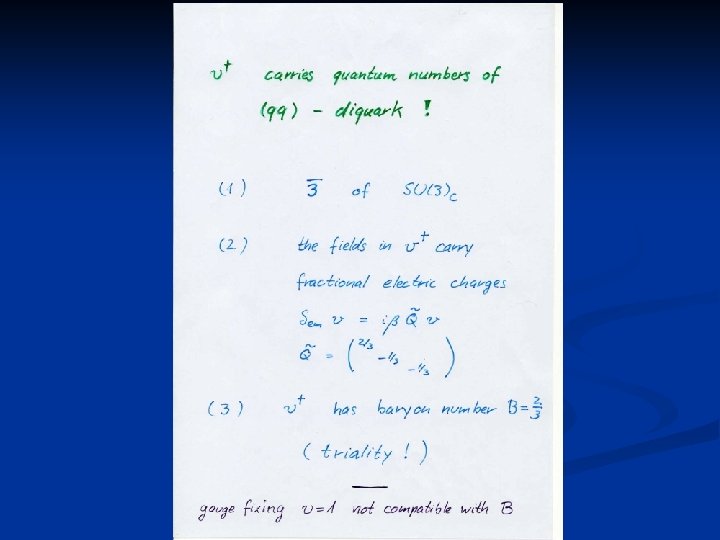 v† carries quantum numbers of
(qq) – diquark !
(1) 3̅ of SU(3)c
(2) the fields in v† carry
fractional electric charges
δem v = iβ Q̃ v
Q̃ = ( 2/3 -1/3 -1/3 )
(3) v† has baryon number B = 2/3
( triality ! )
gauge fixing v = 1 not compatible with B